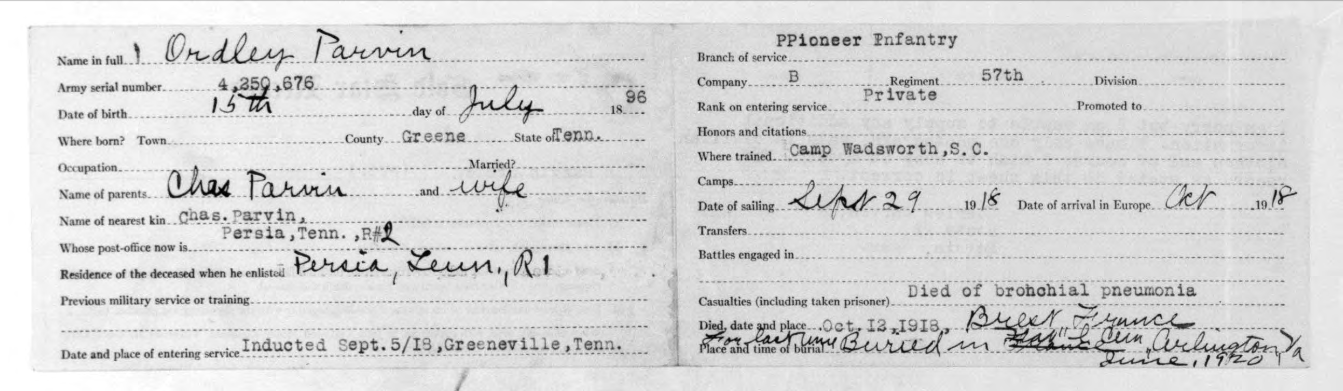 Name in full Ordley Parvin
Army serial number 4,250,676
Date of birth 15th day of July 1896
Where born? Town County Greene State of Tenn.
Occupation Married?
Name of parents Chas Parvin and wife
Name of nearest kin Chas. Parvin,
Persia, Tenn., R#2
Whose post-office now is
Residence of the deceased when he enlisted Persia, Tenn., R1
Previous military service or training
Date and place of entering service Inducted Sept.5/18, Greeneville, Tenn.
PPioneer Infantry
Branch of service
Company B Regiment 57th Division
Rank on entering service Private Promoted to
Honors and citations
Where trained Camp Wadsworth, S.C.
Camps
Date of sailing Sept 29 1918 Date of arrival in Europe Oct 1918
Transfers
Battles engaged in
Casualties (including taken prisoner) Died of brohchial pneumonia
Died, date and place Oct. 12, 1918, Brest France
For last time
Place and time of burial Buried in Cem, Arlington, Va
June, 1920